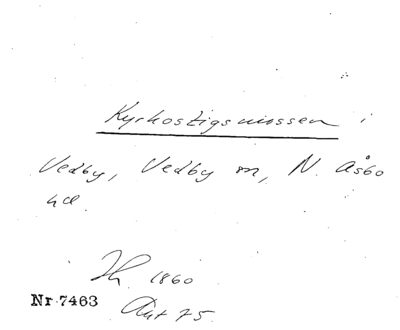 Kyrkostigsmossen i
Vedby, Vedby sn, N. Åsbo
hd.
1860
Nr 7463
Ant 75